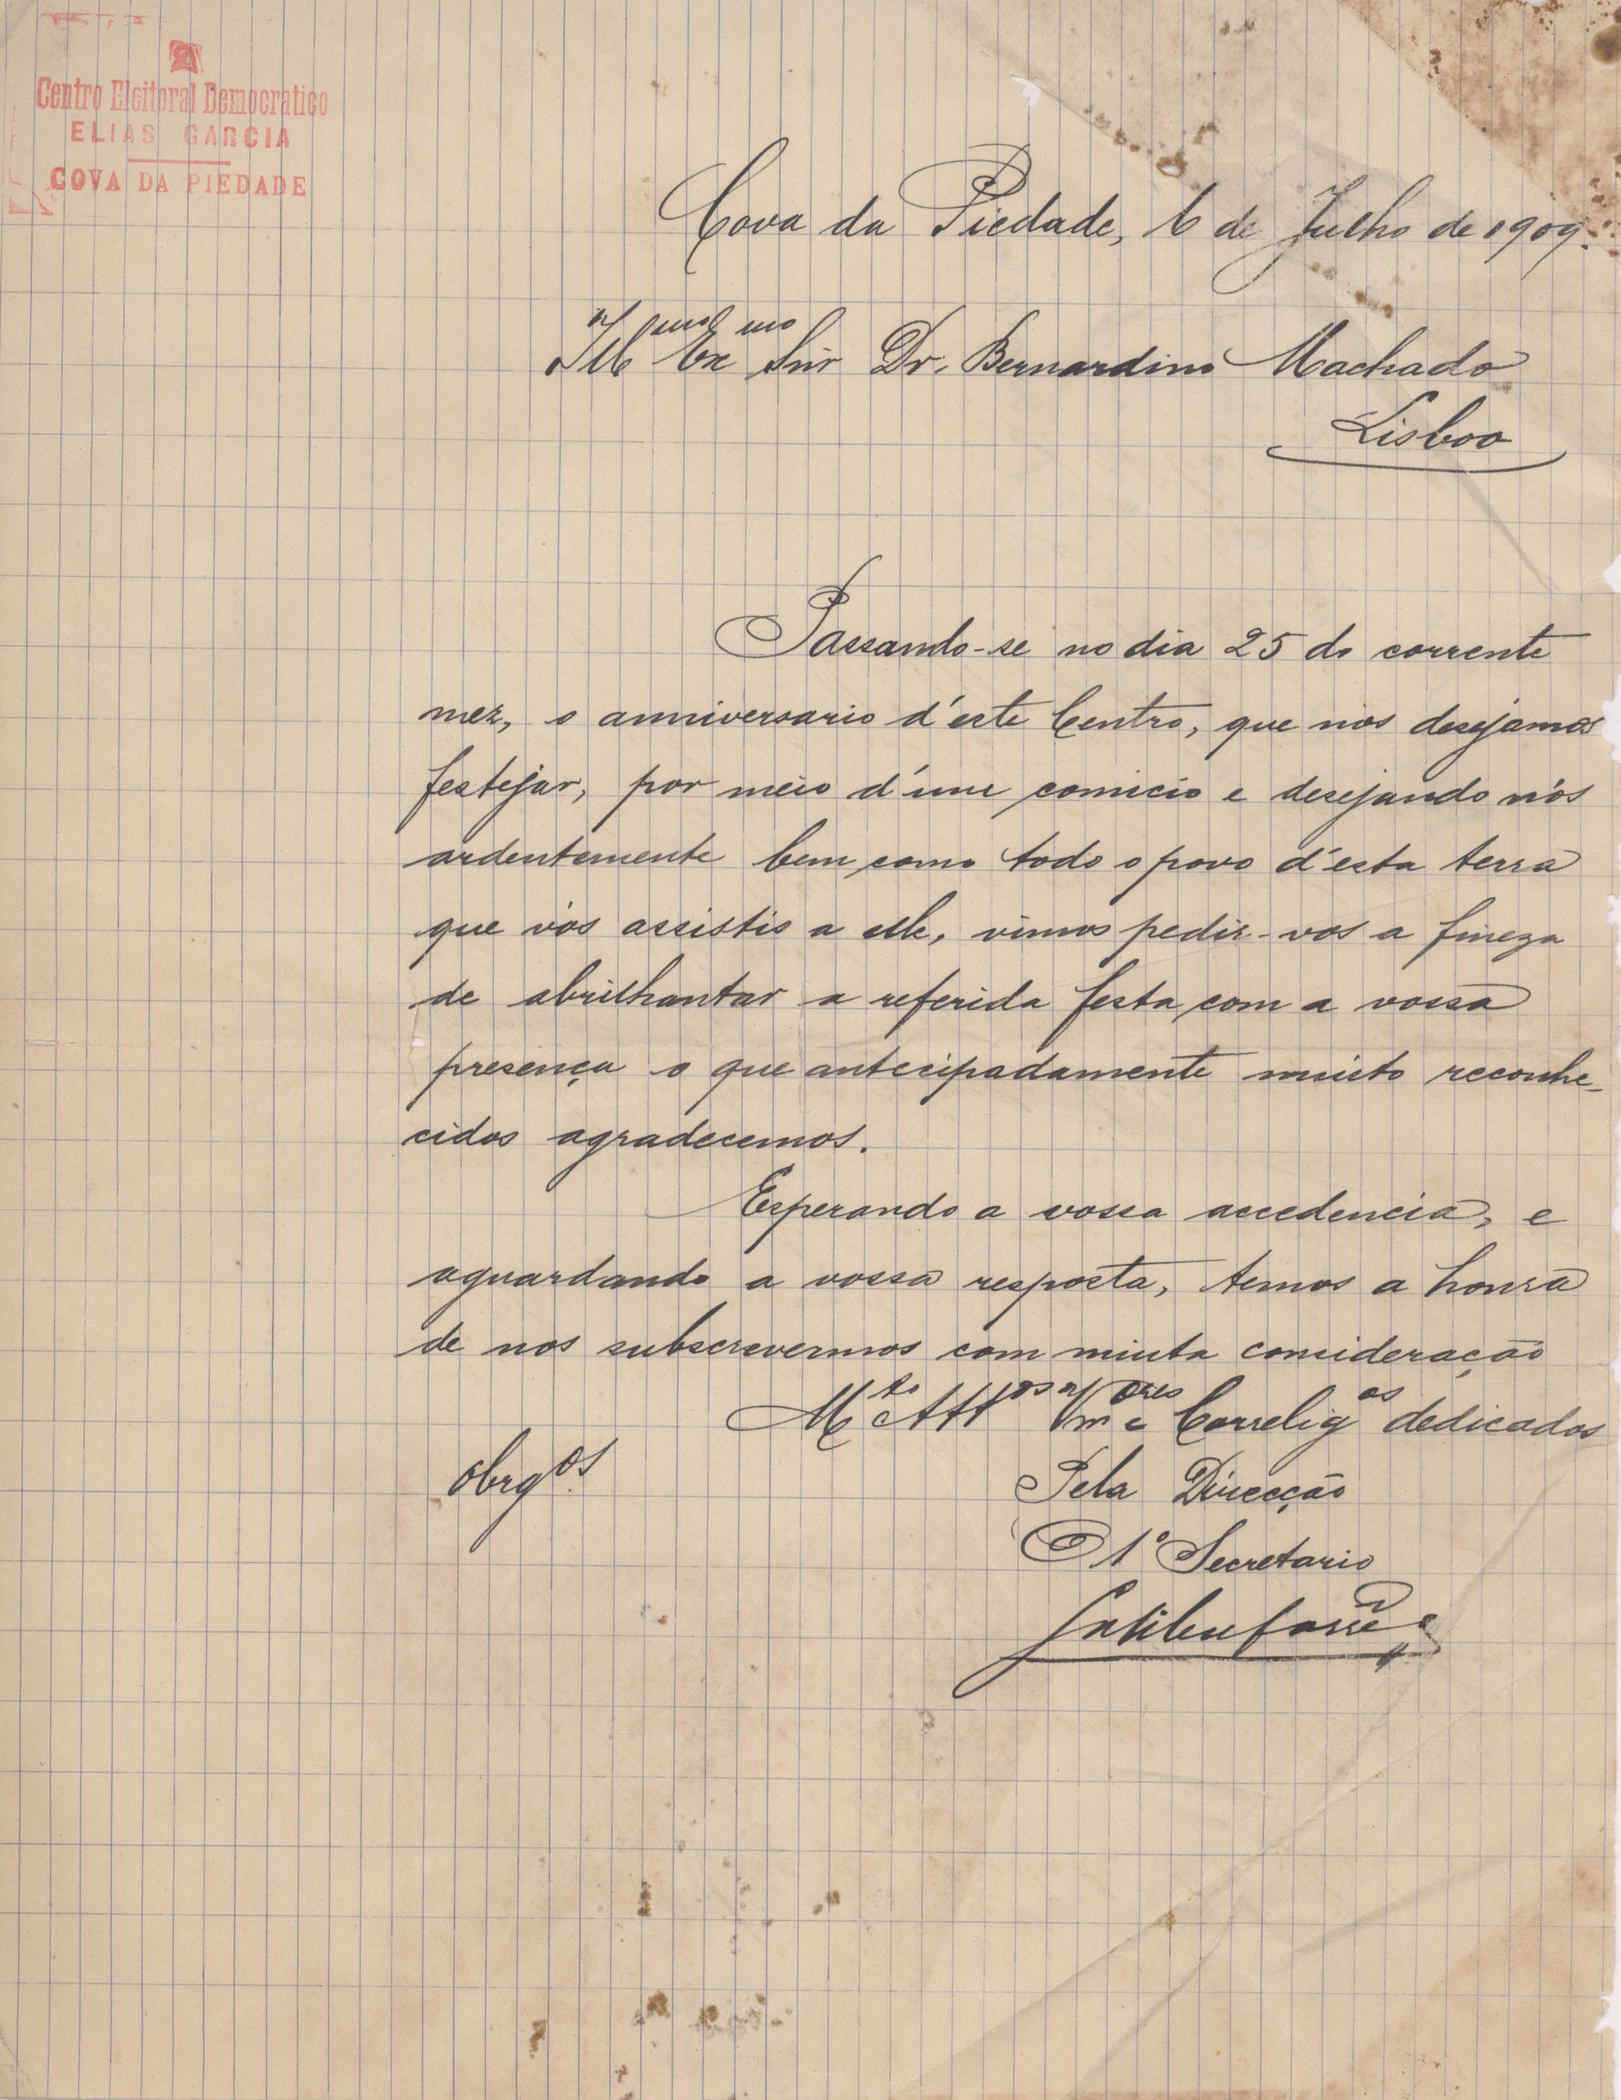 Centro Eleitoral Democratico
ELIAS GARCIA
COVA DA PIEDADE
Cova da Piedade, 6 de Julho de 1909.
Ill.mo Ex.mo Snr Dr. Bernardino Machado
Lisboa
Passando-se no dia 25 do corrente
mez, o anniversario d'este Centro, que nós desejamos
festejar, por meio d'um comicio e desejando nós
ardentemente bem como todo o povo d'esta terra
que vós assistis a elle, vimos pedir-vos a fineza
de abrilhantar a referida festa com a vossa
presença o que antecipadamente muito reconhe-
cidos agradecemos.
Esperando a vossa accedencia, e
aguardando a vossa resposta, temos a honra
de nos subscrevermos com miuta consideração
M.to Att.os V.ores e Correlig.os dedicados
obrg.os
Pela Direcção
O 1º Secretario